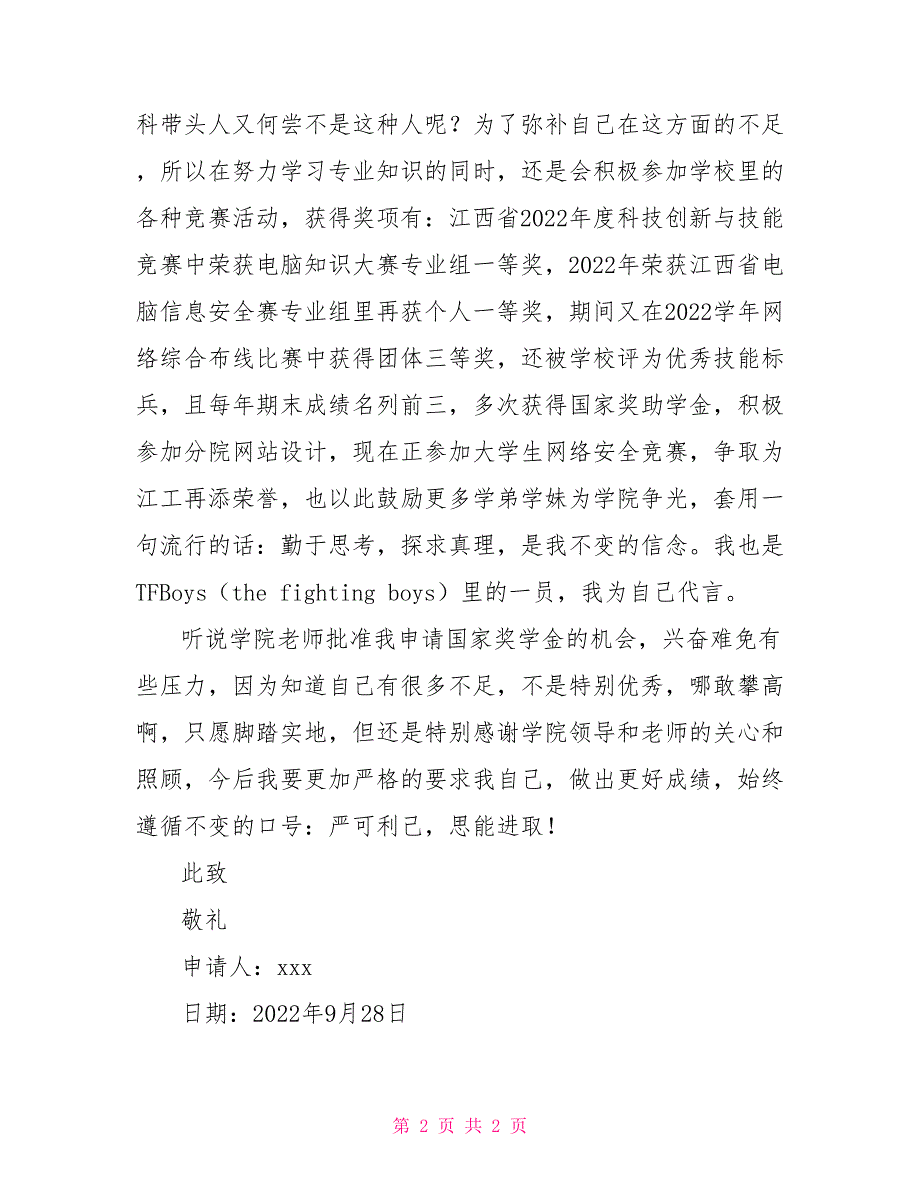 科带头人又何尝不是这种人呢？为了弥补自己在这方面的不足
，所以在努力学习专业知识的同时，还是会积极参加学校里的
各种竞赛活动，获得奖项有：江西省2022年度科技创新与技能
竞赛中荣获电脑知识大赛专业组一等奖，2022年荣获江西省电
脑信息安全赛专业组里再获个人一等奖，期间又在2022学年网
络综合布线比赛中获得团体三等奖，还被学校评为优秀技能标
兵，且每年期末成绩名列前三，多次获得国家奖助学金，积极
参加分院网站设计，现在正参加大学生网络安全竞赛，争取为
江工再添荣誉，也以此鼓励更多学弟学妹为学院争光，套用一
句流行的话：勤于思考，探求真理，是我不变的信念。我也是
TFBoys（the fighting boys）里的一员，我为自己代言。
听说学院老师批准我申请国家奖学金的机会，兴奋难免有
些压力，因为知道自己有很多不足，不是特别优秀，哪敢攀高
啊，只愿脚踏实地，但还是特别感谢学院领导和老师的关心和
照顾，今后我要更加严格的要求我自己，做出更好成绩，始终
遵循不变的口号：严可利己，思能进取！
此致
敬礼
申请人：xxx
日期：2022年9月28日
第 2 页 共 2 页